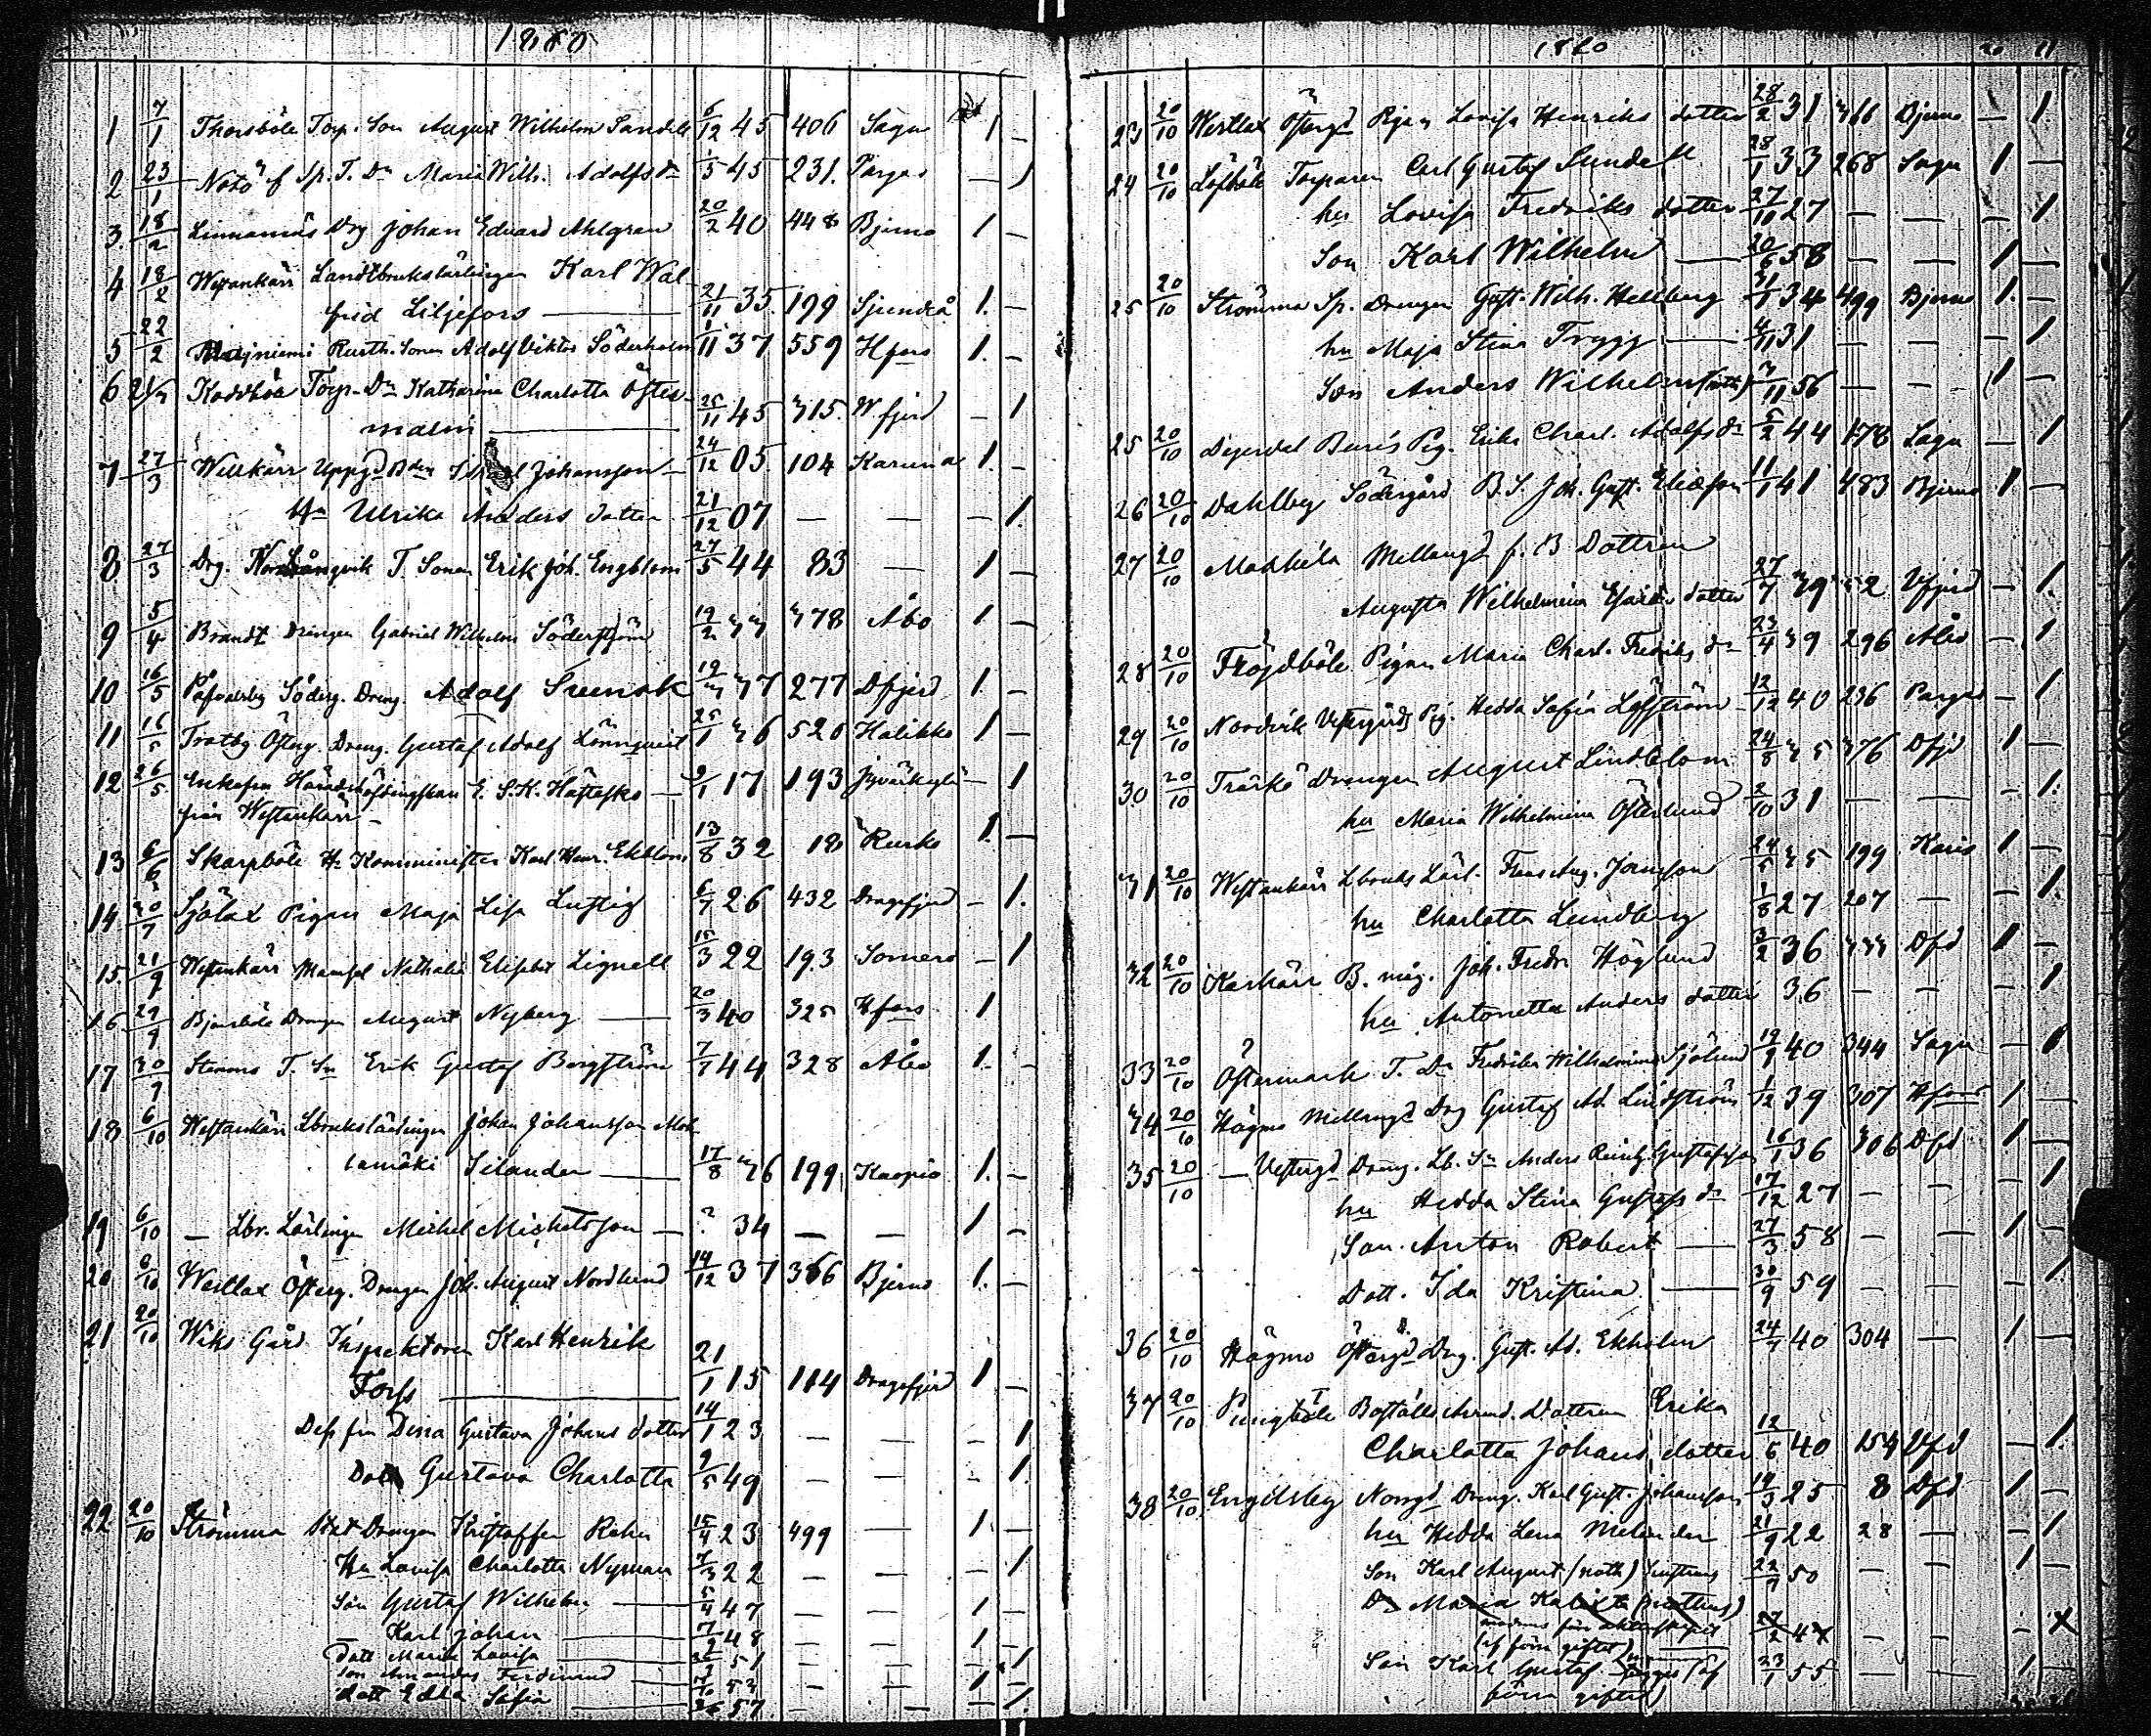 1860
1 7/1 Thorsböle Torp. Son August Wilhelm Sandell 6/12 45 406 Sagu 1 —
2 23/1 Notö f Sp. T. Dr Maria Wilh. Adolfsdr 1/5 45 231. Pargas — 1
3. 18/2 Linnamäs Drg Johan Eduard Ahlgren 20/2 40 448 Bjerno 1 —
4 18/2 Westankärr Landtbrukslärlingen Karl Wal-
frid Liljefors — 21/11 35. 199 Sjundeå 1. —
5 22/2 Rusth. Sonen Adolf Viktor Söderholm 1/11 37 559 Hfors 1. —
6 Koddböle Torp. Dr Katharina Charlotta Öster-
malm — 25/11 45 315. W.fjerd — 1
7 27/3 Willkärr Uppgd Bdn Johansson — 24/12 05. 104 Karuna 1. —
Hu Ulrika Anders dotter 21/12 07 — — — 1.
8 27/3 Drg. T. Sonen Erik Joh. Engblom 27/5 44 83 — 1 —
9 5/4 Brandt Drängen Gabriel Wilhelm Söderström 19/2 33 378 Åbo 1 —
10 16/5 Söderg. Dreng. Adolf Svensk 37 277 Dfjerd 1. —
11 16/5 Tratby Österg. Dreng. Gustaf Adolf Lönnquist 25/1 36 520 Halikko 1 —
12 26/5 Enkefru Häradshöfdingskan E. S. K. Hästesko — 9/1 17 193 Jyväskylä — 1
från Westankärr —
13 6/6 Skarpböle Hr Kominister Karl Henr. Ekblom 13/8 32 18 Rusko 1. —
14 Sjölax Pigan Maja Lisa Lustig 6/7 26 432 Dragsfjerd — 1.
15. 21/9 Westankärr Mamsel Nathalia Elisabet Lignell 15/3 22 193 Somero — 1
16 29/9 Bjensböle Drengen August Nyberg — 20/3 40 325 Hfors 1
17 30/9 T. Sn Erik Gustaf Bergström 7/7 44 328 Åbo 1. —
18 6/10 Westankärr Lbrukslärlingen Johan Johansson
Silander — 17/8 36 199 Kuopio 1. —
19 6/10 — Lbr. Lärlingen Michel Michelsson — ? 34 — — 1 —
20 6/10 Westlax Österg. Drengen Joh. August Nordlund 14/12 37 366 Bjerno 1. —
21 20/10 Wiks Gård Inspektoren Karl Henrik
Forss — 21/1 15 114 Dragsfjerd 1 —
Dess fru Dina Gustava Johans dotter 14/1 23 — — — 1
Dott Gustava Charlotta 9/5 49 — — — 1.
22 20/10 Strömma Stat Drengen Kristoffer 15/4 23 499 — 1 —
Hu Lovisa Charlotta Nyman 7/3 22 — — — 1
Son Gustaf Wilhelm — 5/4 47 — — 1 —
— Karl Johan — 7/9 48 — — 1 —
Dott Maria Lovisa — 51 — — — 1
Son Amandus Ferdinand — — — 1 —
dott Edla Sofia — 57 — — — 1.
1860
23 20/10 Westlax Östergd Pigan Lovisa Henriks dotter 28/2 31 366 Bjerno — 1.
24 20/10 Löfböle Torparen Carl Gustaf Sundell 28/1 33 268 Sagu 1 —
hu Lovisa Fredriks dotter 27/10 27 — — — 1
Son Karl Wilhelm — 20/6 58 — — 1 —
25 20/10 Strömma Sp. Drengen Gust. Wilh. Hellberg 34 499 Bjerno 1. —
hu Maja Stina Trygg — 31 — — — 1
Son Anders Wilhelm 56 — — 1 —
25 20/10 Pig. Erika Charl. Adolfs dr 5/2 44 178 Sagu — 1
26 20/10 Dahlby Södergård B. S. Joh. Gust. Eliasson 11/1 41 483 Bjerno 1 —
27 20/10 Mellangd f. B Dottren
Augusta Wilhelmina dotter 27/7 39 Wfjerd — 1.
28 20/10 Fröjdböle Pigan Maria Charl. Fredriks dr 23/4 39 296 Åbo — 1
29 20/10 Nordvik Vestergårds Pig. Hedda Sofia Löfström 12/12 40 236 Pargas — 1
30 20/10 Träskö Drengen August Lindblom 24/8 35 376 Dfjd 1 —
hu Maria Wilhelmina Österlund 2/10 31 — — — 1.
31 20/10 Westankärr Lbruks Lärl. Frans Aug. 24/5 35 199 Karis 1 —
hu Charlotta Lundberg 1/8 27 207 — — 1.
32 20/10 Karkärr B. måg. Joh. Fredr Höglund 3/2 36 333 Dfd 1 —
hu Antonetta Anders dotter 36 — — — 1
33 20/10 Östermark T. Dr Fredrika Wilhelmina Sjölund 19/9 40 344 Sagu — 1
34 20/10 Högmo Mellangd Drg Gustaf Ad. Lindström 1/12 39 307 Hfors 1 —
35 20/10 — Vestergd Dreng. Lb. Sn Anders Reinh. Gustafsson 16/1 36 306 Dfd 1 —
hu Hedda Stina Gustafs dr 17/12 27 — — — 1
Son Anton Robert — 27/3 58 — — 1 —
Dott. Ida Kristina — 30/9 59 — — — 1
36 20/10 Högmo Östergd Dng. Gust. Ad. Ekholm 24/7 40 304 — 1 —
37 20/10 Pungböle Boställs Arend. Dottren Erika
Charlotta Johans dotter 12/6 40 154 Wfd — 1.
38 20/10 Engelsby Norrgd Dreng. Karl Gust. Johansson 14/3 25 8 Dfd 1 —
hu Hedda Lena Melander 21/9 22 28 — — 1
Son Karl August 50 — — 1 —
Dr Maria 27/2 47 — — — X
(af förra giftet)
Son Karl Gustaf (af 23/1 55 — — 1 —
förra giftet)